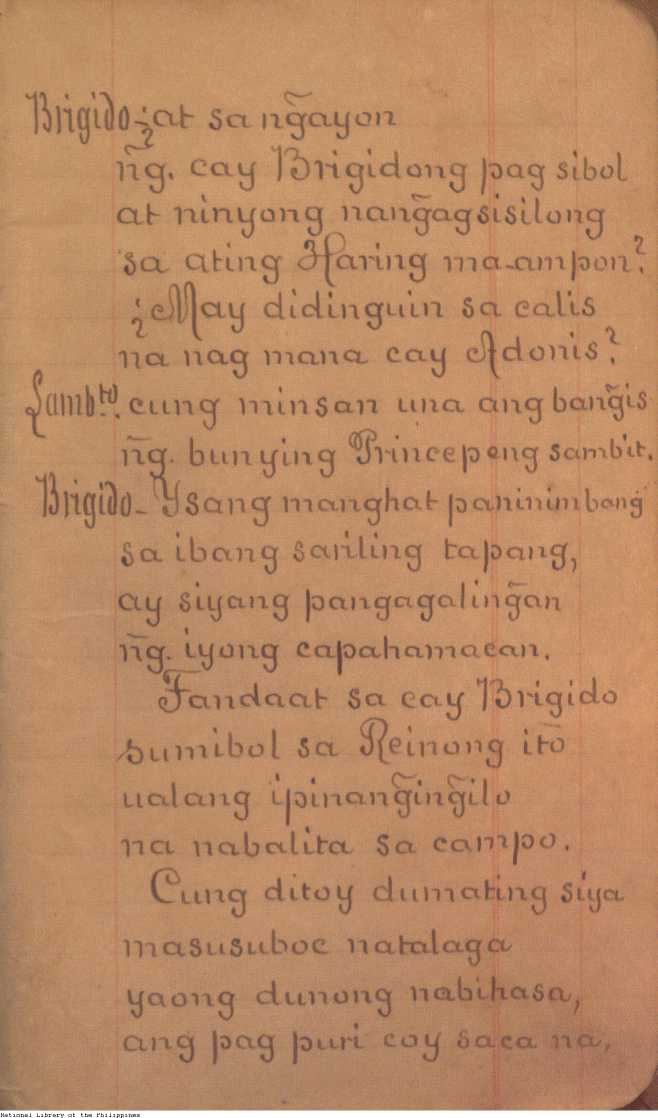 Brigido - ¿at sa ng̃ayon
ñg. cay Brigidong pag sibol
at ninyong nang̃agsisilong
sa ating Haring ma-ampon?
¿May didinguin sa calis
na nag mana cay Adonis?
Lambto. cung minsan una ang bang̃is
ñg. bunying Princepeng sambit.
Brigido - Ysang manghat paninimbang
sa ibang sariling tapang,
ay siyang pangagaling̃an
ñg. iyong capahamacan.
Tandaat sa cay Brigido
sumibol sa Reinong ito
ualang ipinang̃ing̃ilo
na nabalita sa campo.
Cung ditoy dumating siya
masusuboc natalaga
yaong dunong nabihasa,
ang pag puri coy saca na,
National Library of the Philippines